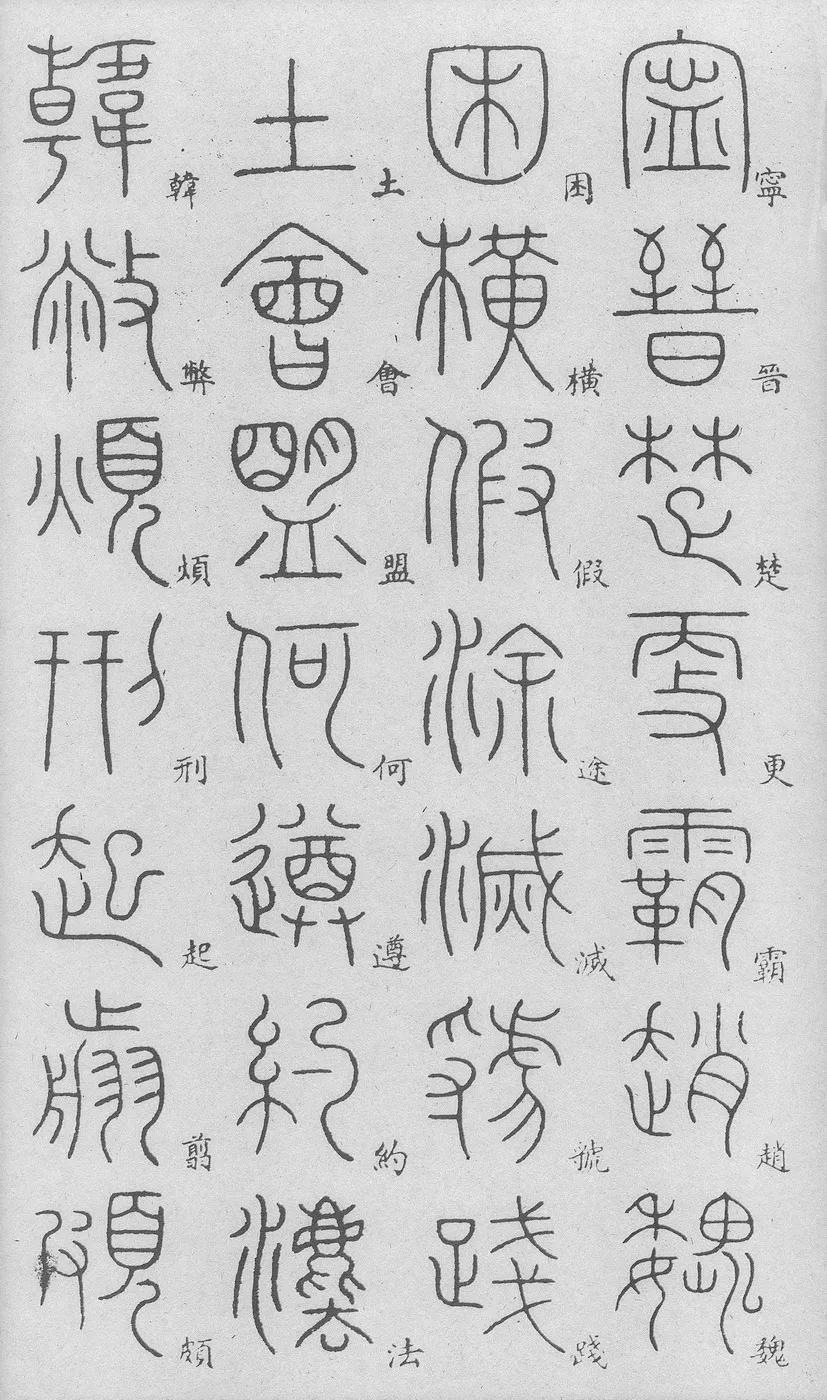 寧晉楚更霸趙魏
困橫假途滅虢踐
土會盟何遵約法
韓弊煩刑起翦頗